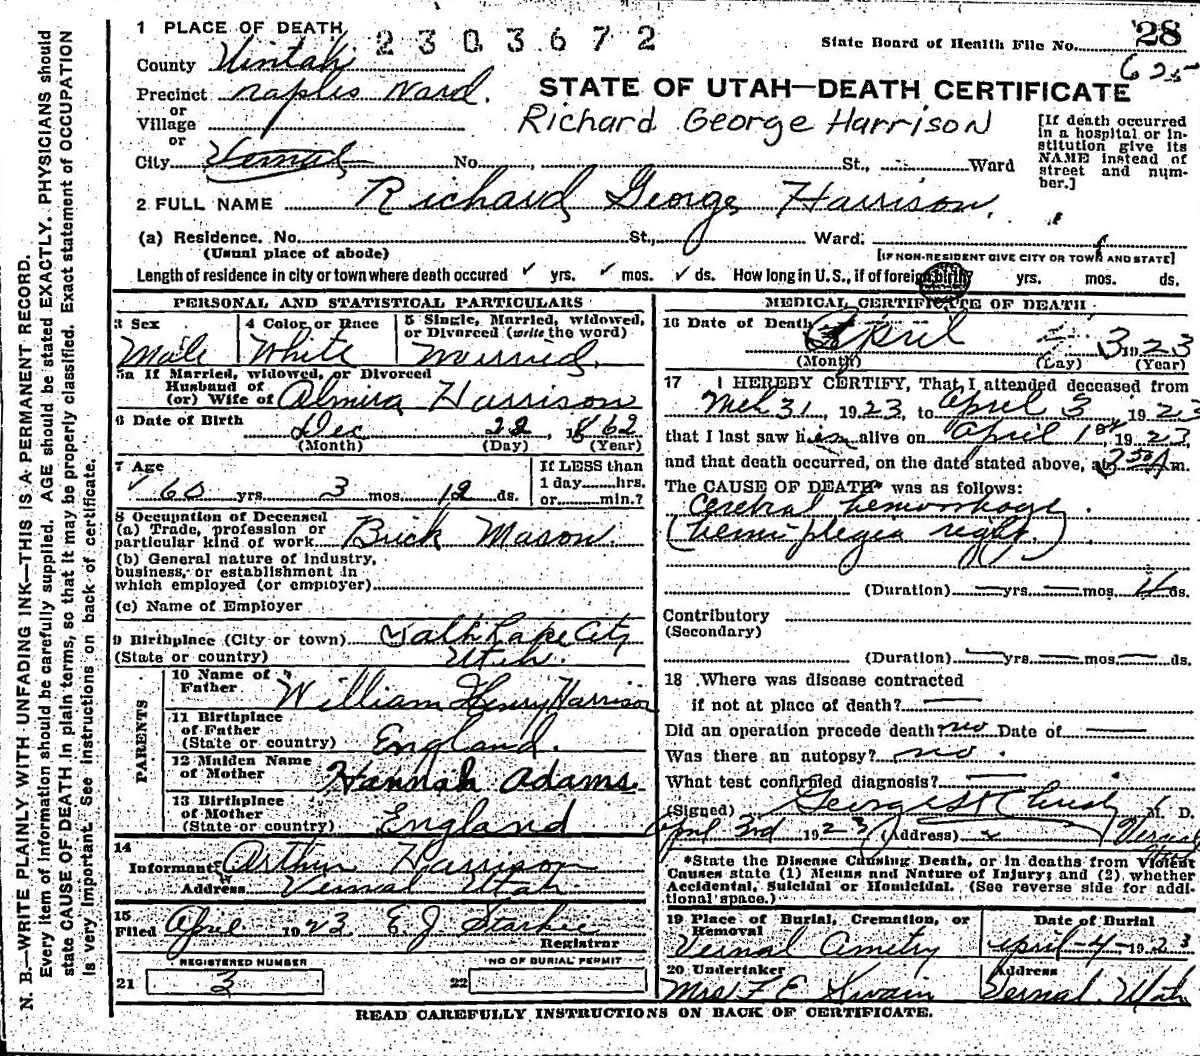 1 PLACE OF DEATH 2303672
State Board of Health File No. 28
625
County Uintah
Precinct Naples Ward.
or
Village
or
City Vernal No. St., Ward
STATE OF UTAH—DEATH CERTIFICATE
Richard George Harrison
[If death occurred
in a hospital or in-
stitution give its
NAME instead of
street and num-
ber.]
2 FULL NAME Richard George Harrison.
(a) Residence. No. St., Ward.
(Usual place of abode)
[IF NON-RESIDENT GIVE CITY OR TOWN AND STATE]
Length of residence in city or town where death occured ✓ yrs. ✓ mos. ✓ ds. How long in U.S., if of foreign birth? yrs. mos. ds.
PERSONAL AND STATISTICAL PARTICULARS
3 Sex
Male
4 Color or Race
White
5 Single, Married, widowed,
or Divorced (write the word)
Married.
5a If Married, widowed, or Divorced
Husband of
(or) Wife of Almira Harrison
6 Date of Birth Dec 22, 1862
(Month) (Day) (Year)
7 Age
✓ 60 yrs. 3 mos. 12 ds.
If LESS than
1 day hrs.
or min.?
8 Occupation of Deceased
(a) Trade, profession or
particular kind of work Brick Mason
(b) General nature of industry,
business, or establishment in
which employed (or employer)
(c) Name of Employer
9 Birthplace (City or town) Salt Lake City
(State or country) Utah.
PARENTS
10 Name of
Father William Henry Harrison
11 Birthplace
of Father
(State or country) England.
12 Maiden Name
of Mother Hannah Adams.
13 Birthplace
of Mother
(State or country) England
14
Informant Arthur Harrison
Address Vernal Utah
15
Filed April 1923 E. J. Starkie
Registrar
REGISTERED NUMBER
21 3
NO OF BURIAL PERMIT
22
MEDICAL CERTIFICATE OF DEATH
16 Date of Death April 3 1923
(Month) (Day) (Year)
17 I HEREBY CERTIFY, That I attended deceased from
Mch 31, 1923, to April 3, 1923
that I last saw him alive on April 1st, 1923
and that death occurred, on the date stated above, at 7 50 A m.
The CAUSE OF DEATH* was as follows:
Cerebral hemorrhage
(hemi-plegia right.)
(Duration) — yrs. — mos. 4 ds.
Contributory
(Secondary)
(Duration) — yrs. — mos. — ds.
18 Where was disease contracted
if not at place of death? —
Did an operation precede death? no Date of —
Was there an autopsy? no.
What test confirmed diagnosis? —
(Signed) George H Christy M. D.
April 3rd 1923 (Address) Vernal
*State the Disease Causing Death, or in deaths from Violent
Causes state (1) Means and Nature of Injury; and (2) whether
Accidental, Suicidal or Homicidal. (See reverse side for addi-
tional space.)
19 Place of Burial, Cremation, or
Removal
Vernal Cmetry
Date of Burial
April-4-1923
20 Undertaker
Mrs F. E. Swain
Address
Vernal. Utah
READ CAREFULLY INSTRUCTIONS ON BACK OF CERTIFICATE.
N. B.—WRITE PLAINLY WITH UNFADING INK—THIS IS A PERMANENT RECORD.
Every item of information should be carefully supplied. AGE should be stated EXACTLY. PHYSICIANS should
state CAUSE OF DEATH in plain terms, so that it may be properly classified. Exact statement of OCCUPATION
is very important. See instructions on back of certificate.